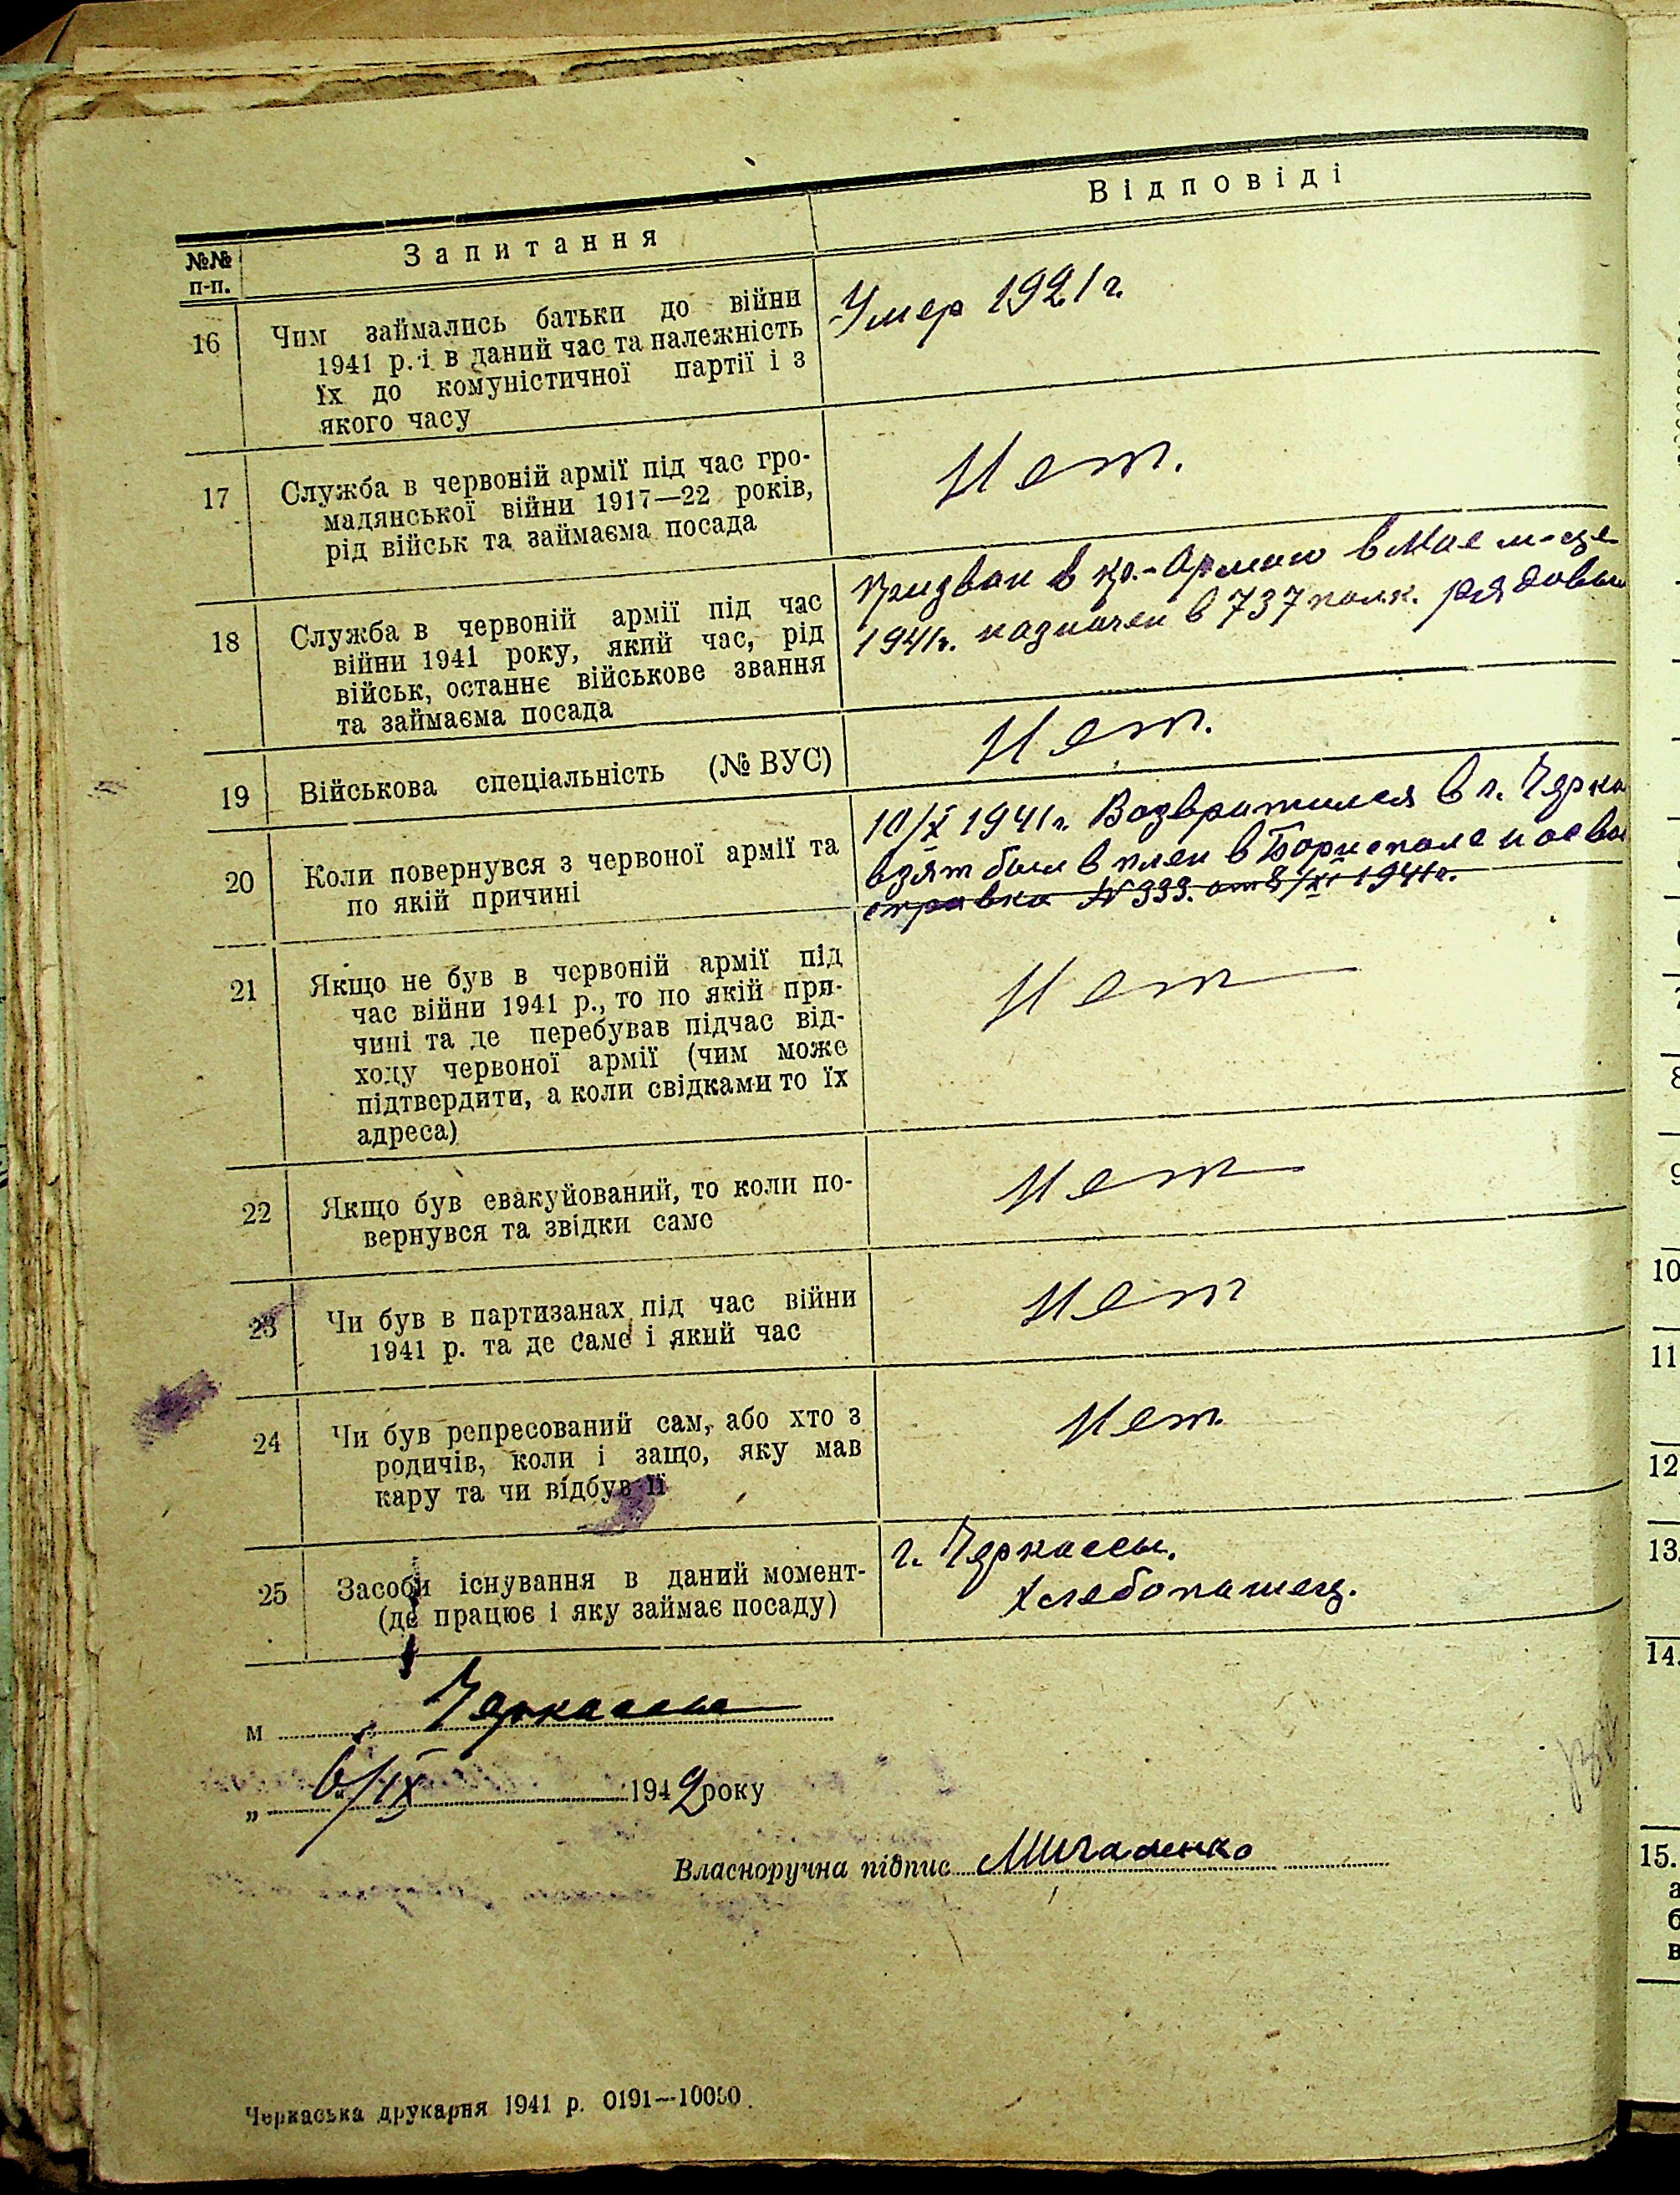 №№ п-п.
Запитання
Відповіді
16
Чим займались батьки до війни
1941 р. і в даний час та належність
їх до комуністичної партії і з
якого часу
Умер 1921 г.
17
Служба в червоній армії під час гро-
мадянської війни 1917—22 років,
рід військ та займаєма посада
Нет.
18
Служба в червоній армії під час
війни 1941 року, який час, рід
військ, останнє військове звання
та займаєма посада
Призван в кр.-Армию в Мае м-це
1941г. назначен в 737 полк. рядовым
19
Військова спеціальність (№ ВУС)
Нет.
20
Коли повернувся з червоної армії та
по якій причині
10/X 1941г. Возвратился в г. Черка
взят был в плен в Борисполе и
справка № 333. от 8/XI 1941г.
21
Якщо не був в червоній армії під
час війни 1941 р., то по якій при-
чині та де перебував підчас від-
ходу червоної армії (чим може
підтвердити, а коли свідками то їх
адреса)
Нет
22
Якщо був евакуйований, то коли по-
вернувся та звідки саме
Нет
23
Чи був в партизанах під час війни
1941 р. та де саме і який час
Нет
24
Чи був репресований сам, або хто з
родичів, коли і защо, яку мав
кару та чи відбув її
Нет.
25
Засоби існування в даний момент-
(де працює і яку займає посаду)
г. Черкассы.
Хлебопашец.
м Черкассы
„ 6/IX 1942 року
Власноручна підпис Мигаленко
Черкаська друкарня 1941 р. 0191—10000.
9
10
11
12
13.
14.
15.
а
б
в